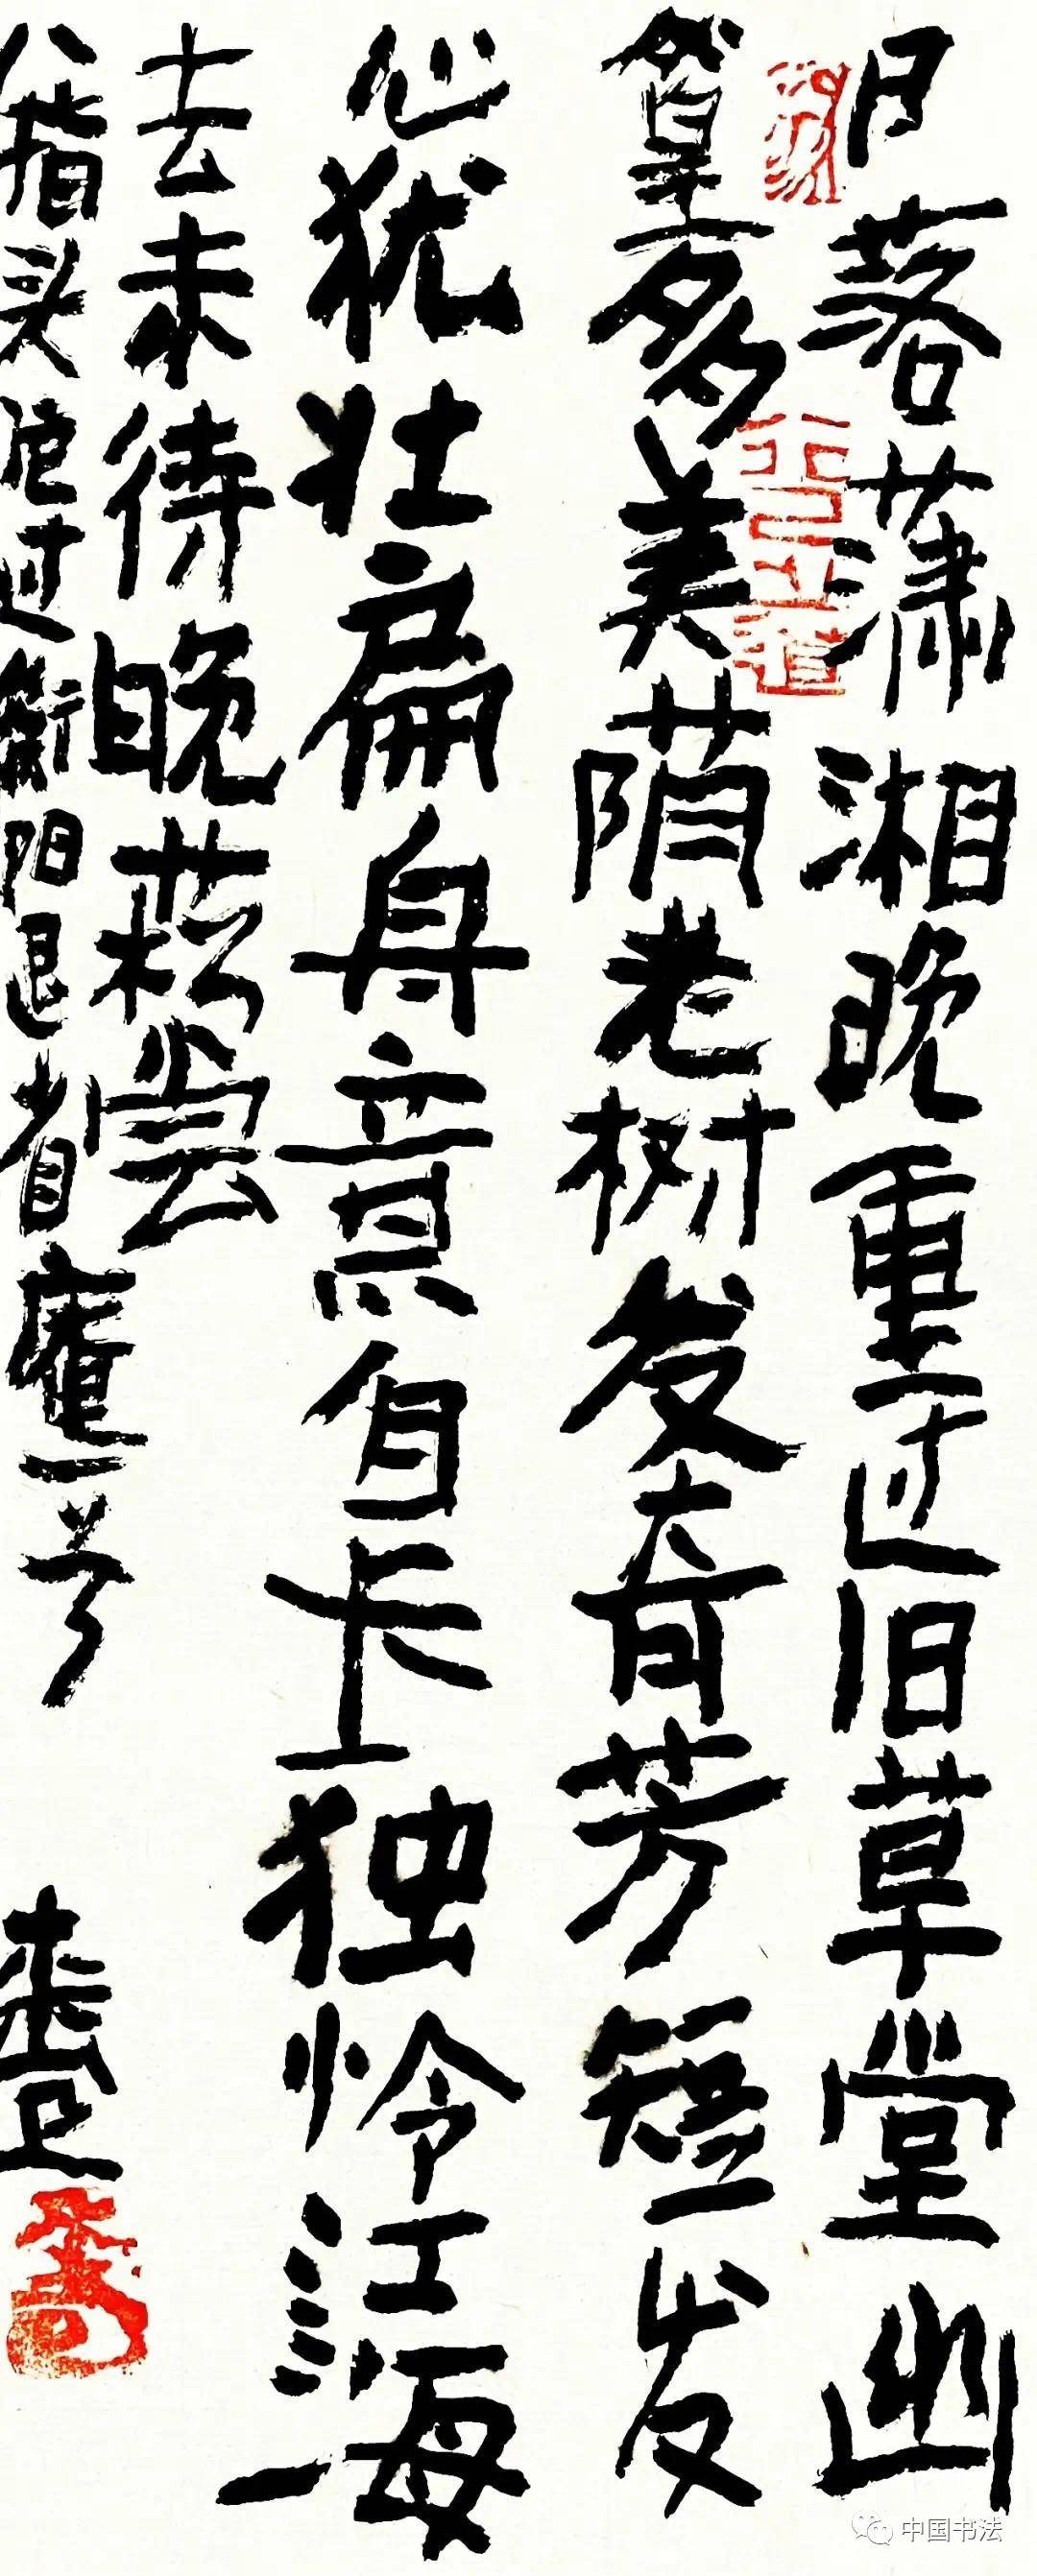 日落潇湘晚重过旧草堂幽
篁多美荫老树发芳短发
心犹壮扁舟意自长独怜江海
去未待晚菘尝
八指头陀过衡阳退省庵一首
中国书法